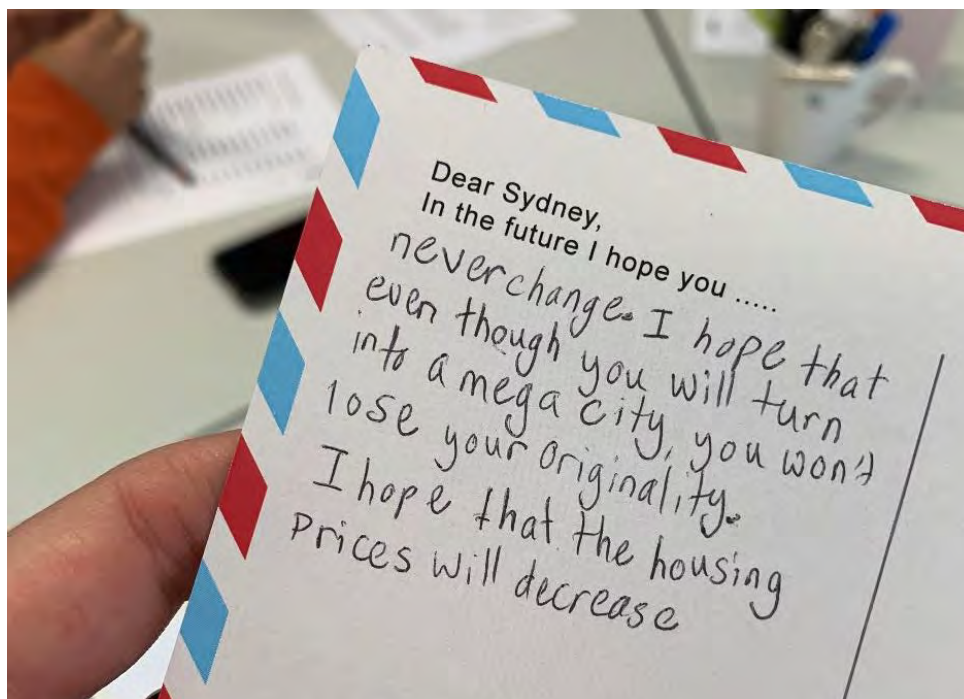 Dear Sydney,
In the future I hope you .....
never change. I hope that
even though you will turn
into a mega city, you won't
lose your originality.
I hope that the housing
Prices will decrease